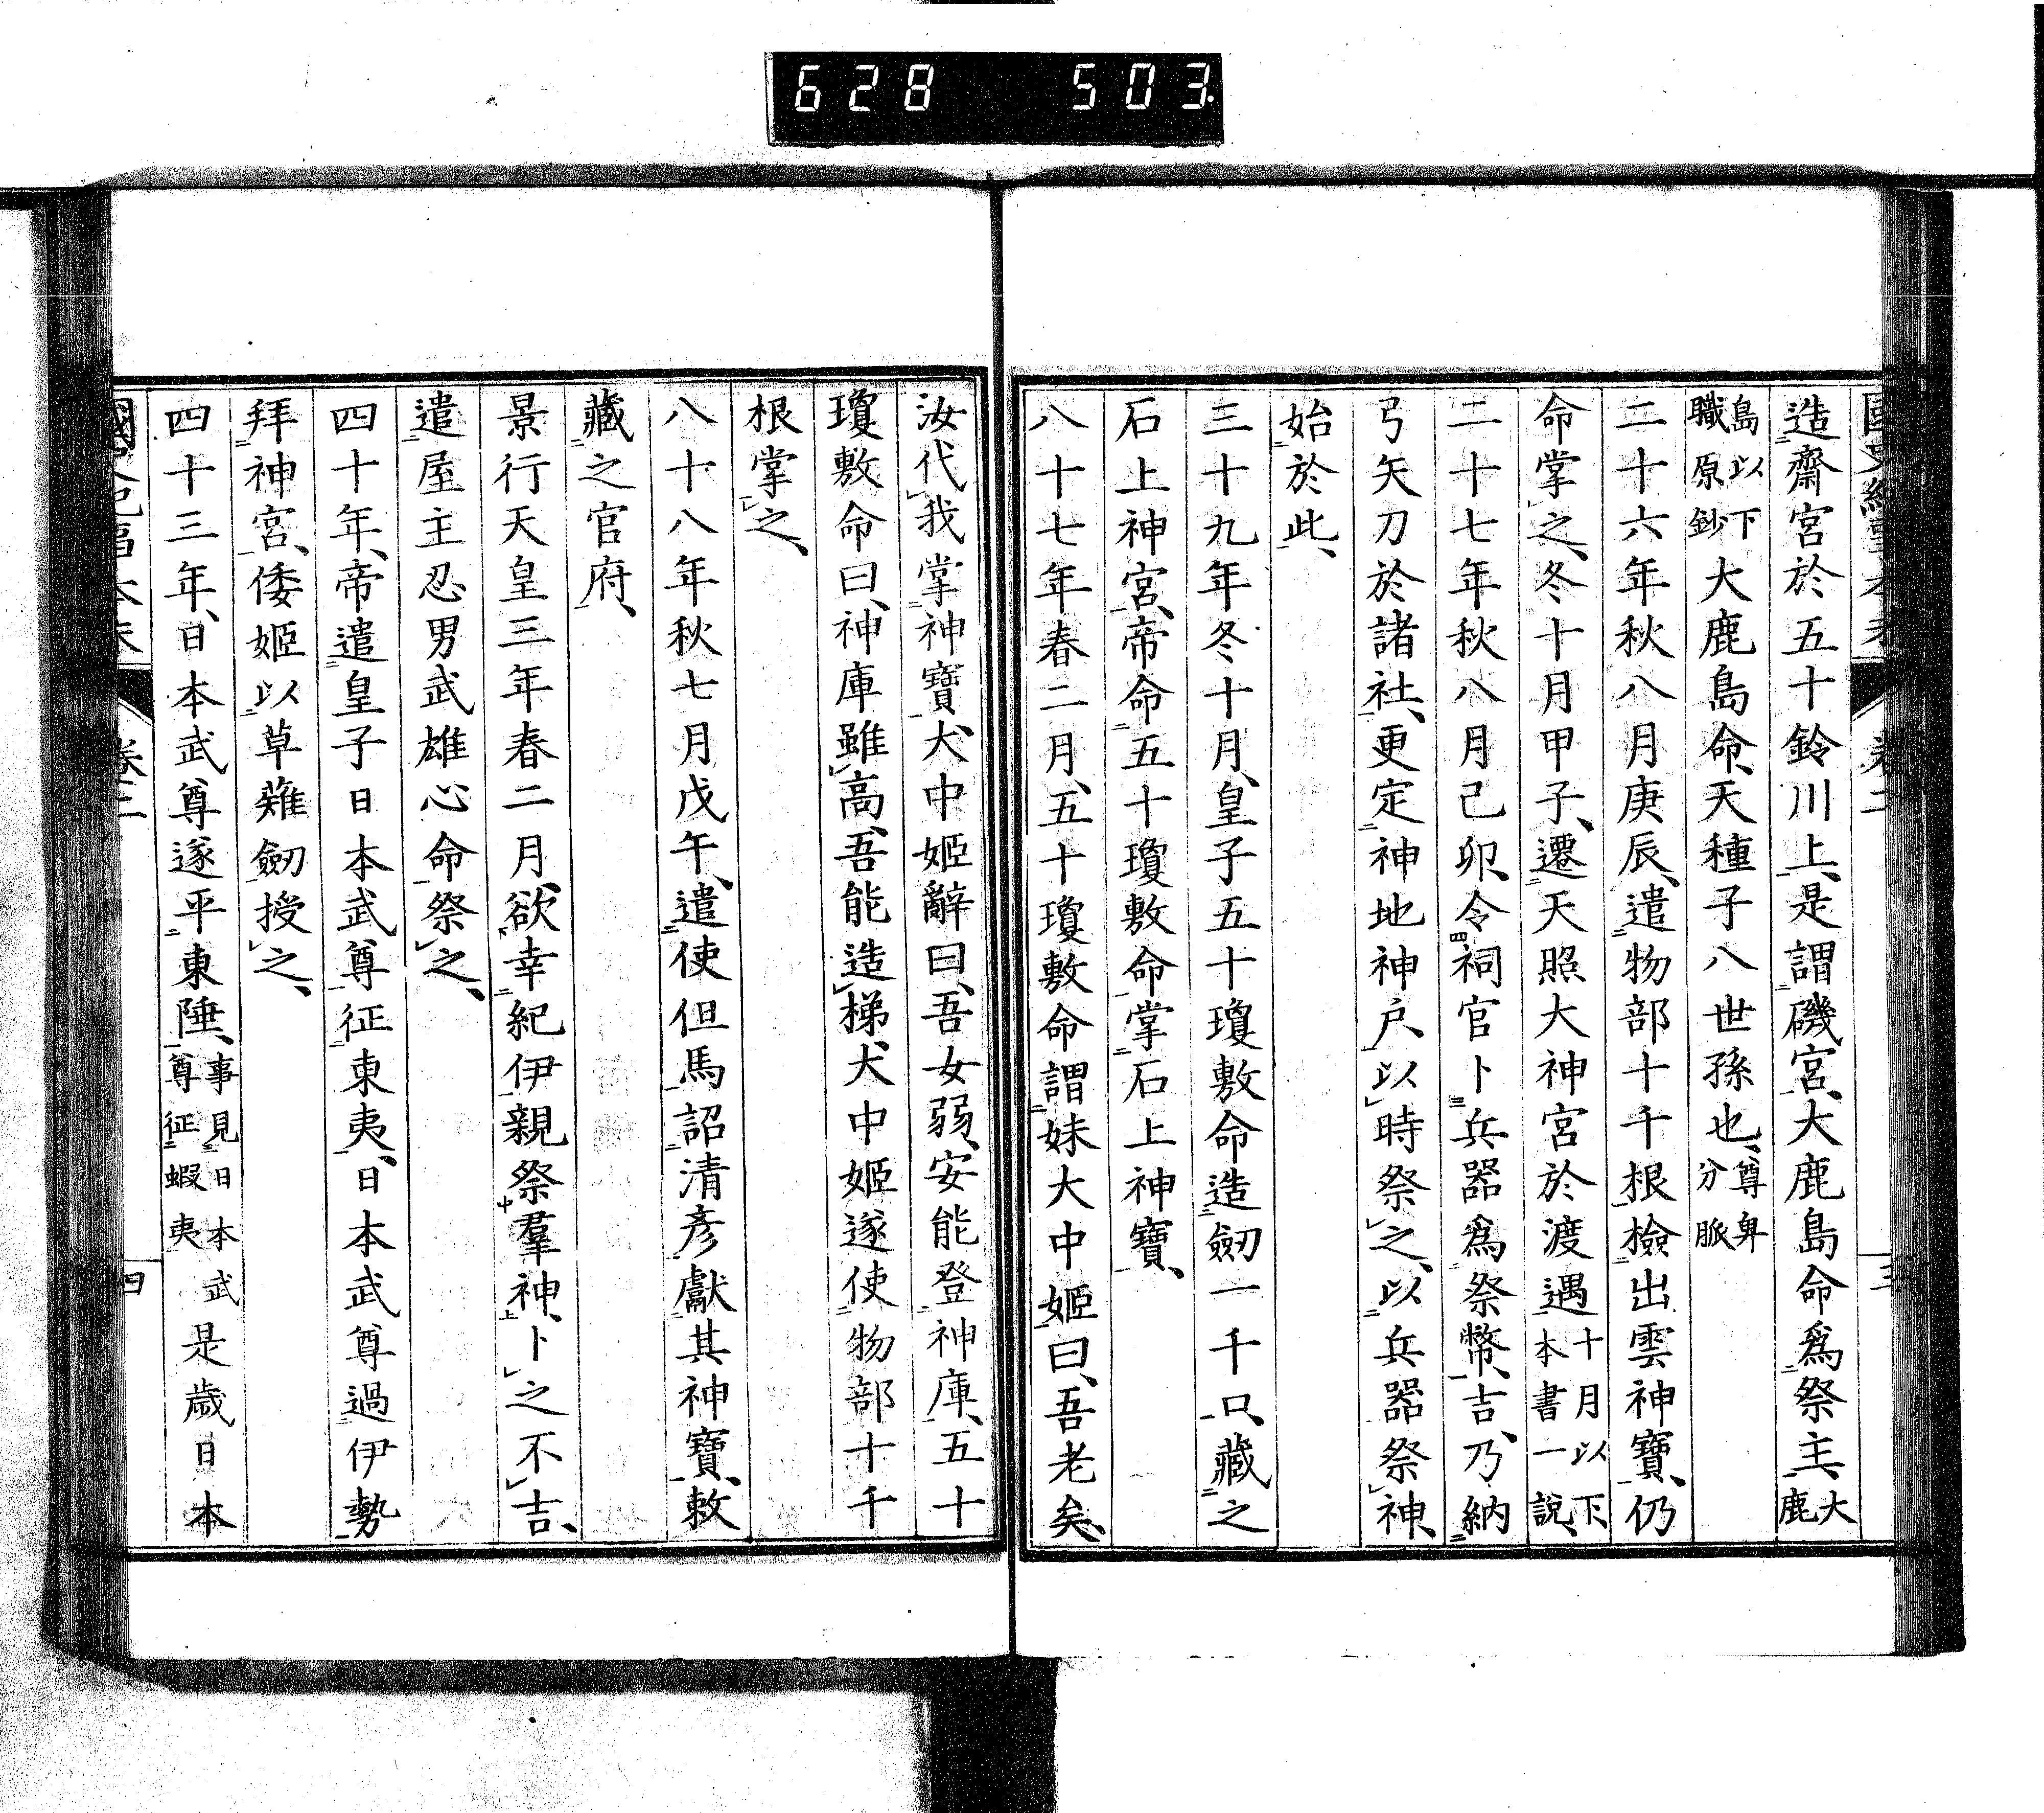 628 503
造齋宮於五十鈴川上、是謂磯宮、大鹿島命爲祭主、大鹿
島以下職原鈔大鹿島命、天種子八世孫也、尊卑分脈
二十六年秋八月庚辰、遣物部十千根檢出雲神寶、仍
命掌之、冬十月甲子、遷天照大神宮於渡遇十月以下本書一說、
二十七年秋八月己卯、令祠官卜兵器爲祭幣、吉、乃納
弓矢刀於諸社、更定神地神戶、以時祭之、以兵器祭神、
始於此、
三十九年冬十月、皇子五十瓊敷命造劒一千口、藏之
石上神宮、帝命五十瓊敷命掌石上神寶、
八十七年春二月、五十瓊敷命謂妹大中姬曰、吾老矣、
汝代我掌神寶、大中姬辭曰、吾女弱、安能登神庫、五十
瓊敷命曰、神庫雖高、吾能造梯、大中姬遂使物部十千
根掌之、
八十八年秋七月戊午、遣使但馬詔清彥獻其神寶、敕
藏之官府、
景行天皇三年春二月、欲幸紀伊親祭羣神、卜之不吉、
遣屋主忍男武雄心命祭之、
四十年、帝遣皇子日本武尊征東夷、日本武尊過伊勢
拜神宮、倭姬以草薙劒授之、
四十三年、日本武尊遂平東陲、事見日本武尊征蝦夷是歲日本
卷二
四